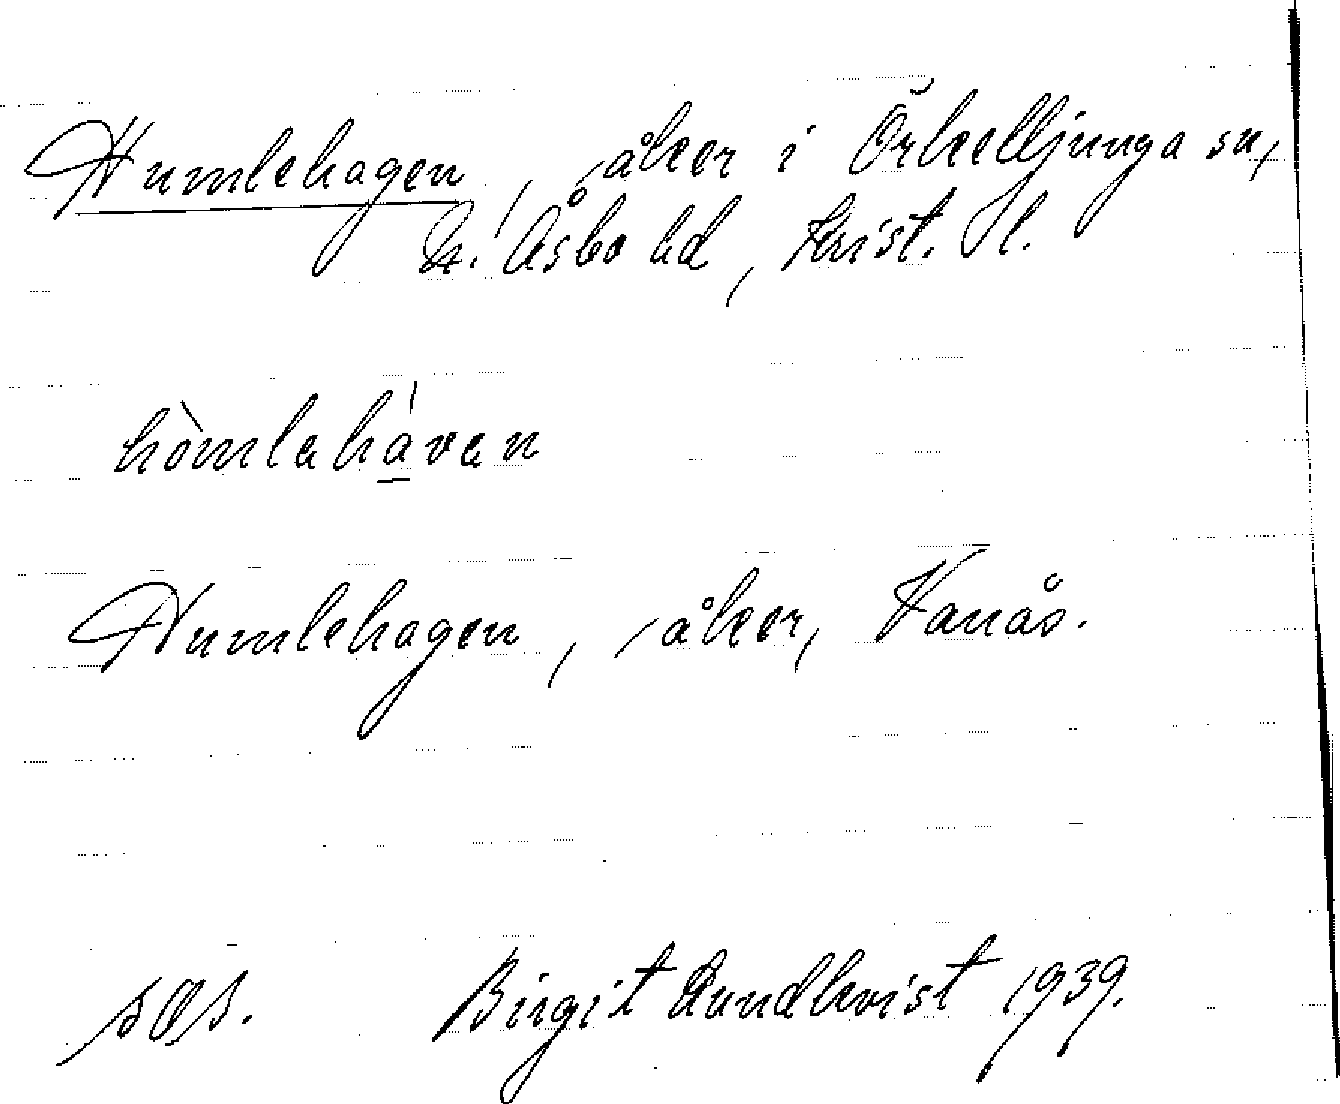 Humlehagen, åker i Örkelljunga sn,
N. Åsbo hd, Krist. l.
hòmlahávan
Humlehagen, åker, Vanås.
sds.
Birgit Rundkvist 1939.